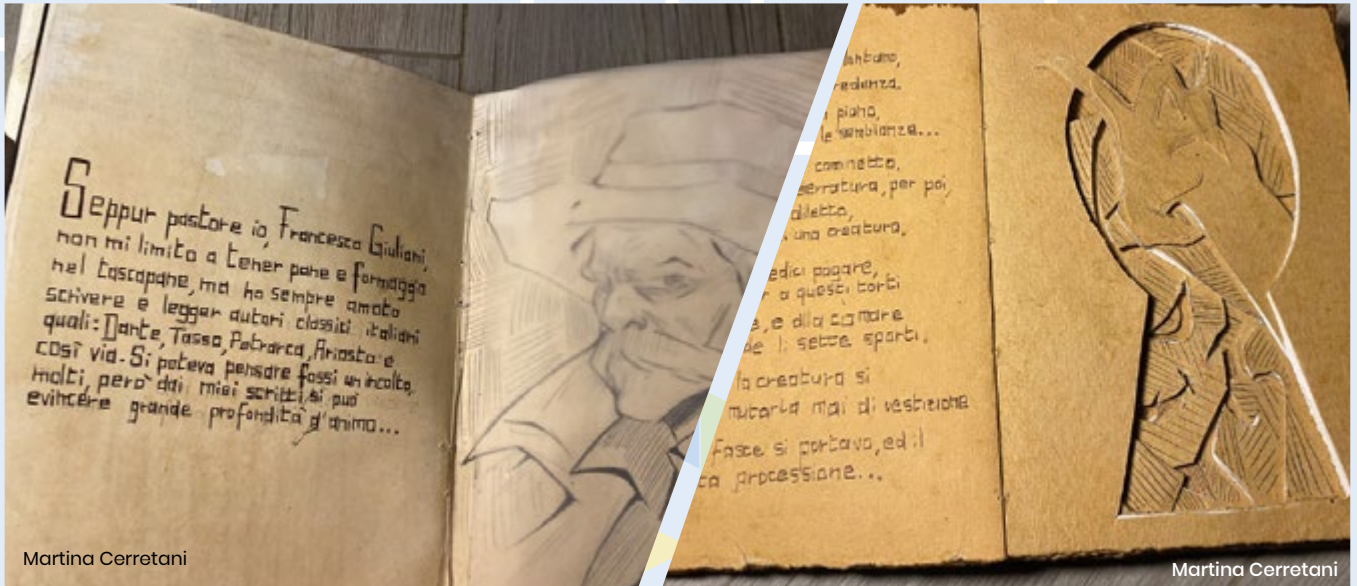 Seppur pastore io, Francesco Giuliani,
non mi limito a tener pane e formaggio
nel tascapane, ma ho sempre amato
scrivere e legger autori classici italiani
quali: Dante, Tasso, Petrarca, Ariosto e
così via. Si poteva pensare fossi un incolto,
molti, però dai miei scritti si può
evincere grande profondità d'animo...
Martina Cerretani
piano,
le sembianze...
serratura, per poi,
una creatura,
pagare,
a questi torti
, e alla comare
li sette sporti.
la creatura si
mutarla mai di vestizione
fasce si portava, ed il
processione...
Martina Cerretani